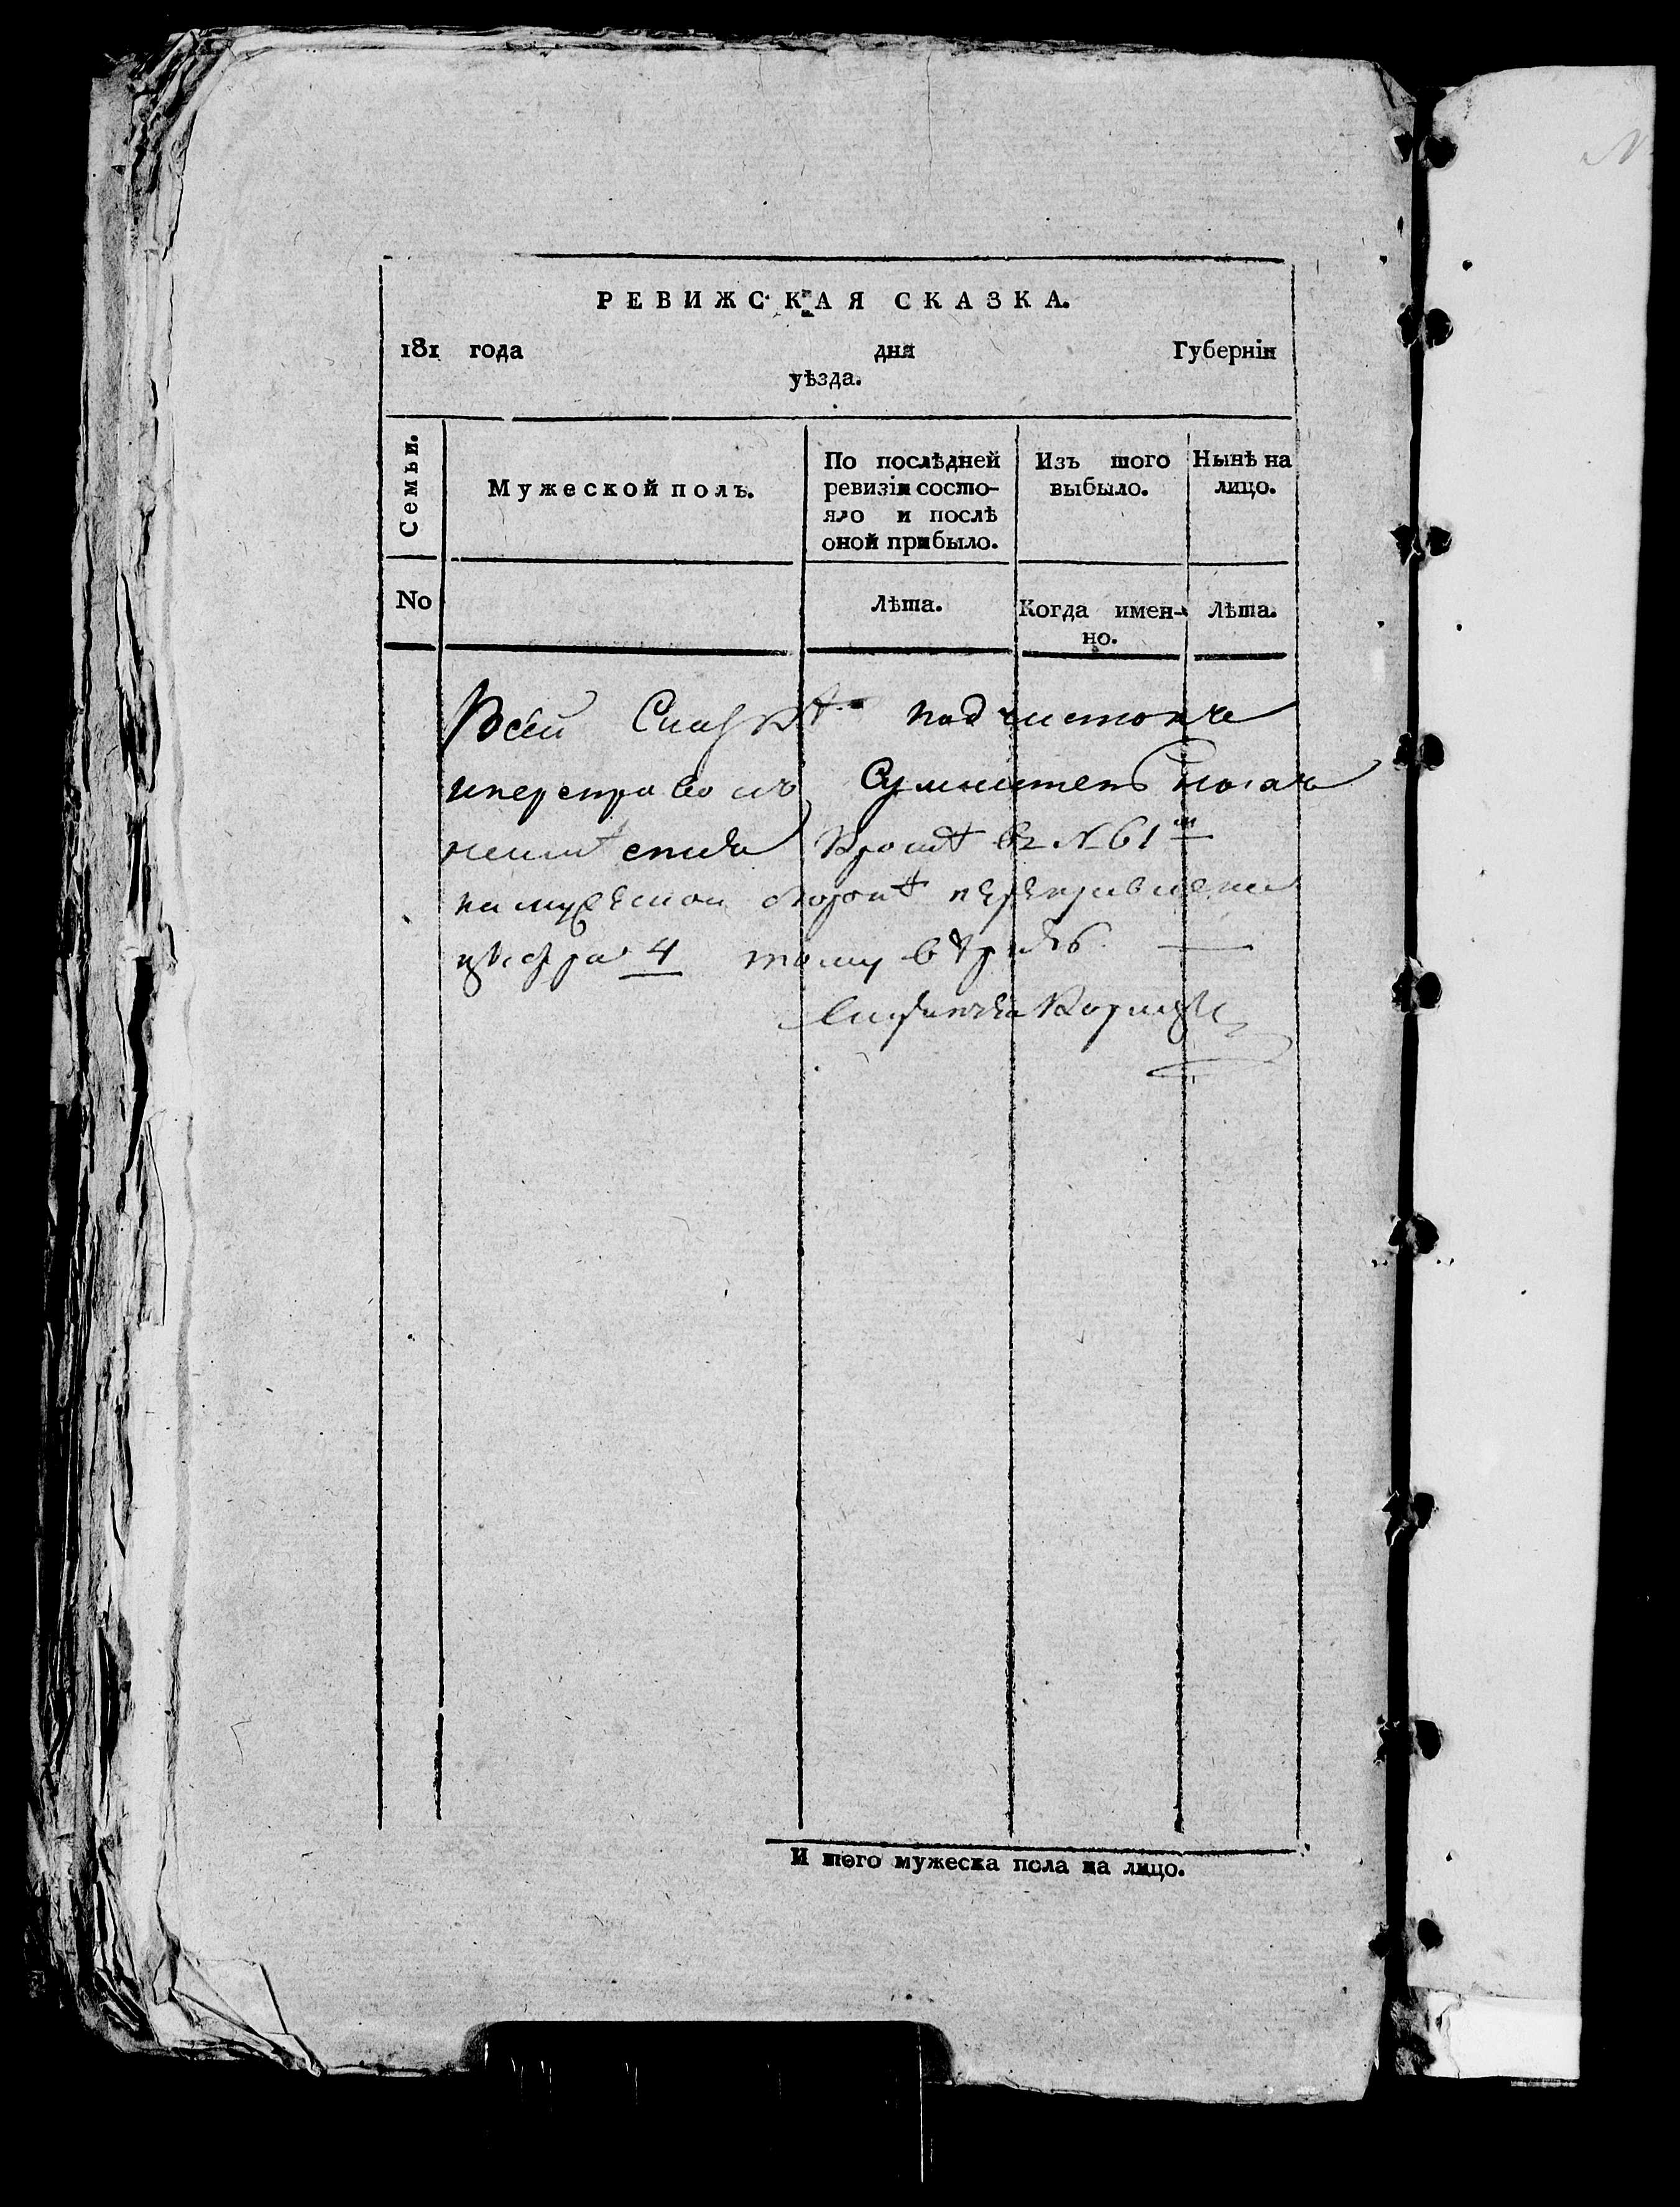 РЕВИЖСКАЯ СКАЗКА.
181 года дня Губерніи
уѣзда.
Семьи.
Мужеской полъ.
По послѣдней
ревизіи состо-
яло и послѣ
оной прибыло.
Изъ того
выбыло.
Нынѣ на
лицо.
No
Лѣта.
Когда имен-
но.
Лѣта.
Всей Сказкѣ подчистокъ
и переправокъ
кромѣ въ № 61м
на мужеской сторонѣ переправлена
цыфра 4 тому вѣрить
И того мужеска пола на лицо.